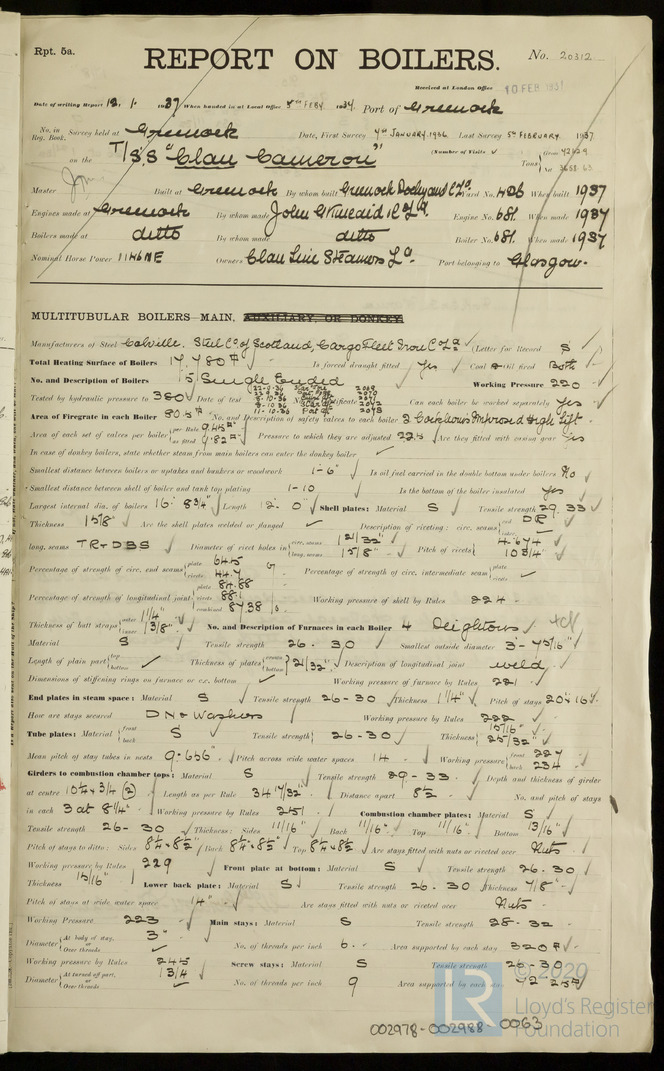 Rpt. 5a.
REPORT ON BOILERS.
No. 20312
Received at London Office 10 FEB 1937
Date of writing Report 12. 1. 1937 When handed in at Local Office 8TH FEBY 1937 Port of Greenock
No. in Reg. Book. Survey held at Greenock Date, First Survey 4TH JANUARY, 1936 Last Survey 5TH FEBRUARY 1937
on the T/S.S "Clan Cameron" (Number of Visits Tons Gross Net
Master Built at Greenock By whom built Greenock Dockyard Co Ld. Yard No. 406 When built 1937
Engines made at Greenock By whom made John G Kincaid & Co Ld. Engine No. 681. When made 1937
Boilers made at ditto By whom made ditto Boiler No. 681. When made 1937
Nominal Horse Power 1146 NE Owners Clan Line Steamers Ld. Port belonging to Glasgow.
MULTITUBULAR BOILERS MAIN, AUXILIARY, OR DONKEY.
Manufacturers of Steel Colville. Steel Co. of Scotland, Cargo Fleet Iron Co Ld (Letter for Record S
Total Heating Surface of Boilers Is forced draught fitted Yes Coal or Oil fired Both
No. and Description of Boilers Single Ended Working Pressure 220
Tested by hydraulic pressure to 380 Date of test Certificate Can each boiler be worked separately Yes
Area of Firegrate in each Boiler 80.5 No. and Description of safety valves to each boiler 2 Cockburns Improved High Lift
Area of each set of valves per boiler per Rule as fitted 9.82 Pressure to which they are adjusted 225 Are they fitted with easing gear Yes
In case of donkey boilers, state whether steam from main boilers can enter the donkey boiler
Smallest distance between boilers or uptakes and bunkers or woodwork 1-6" Is oil fuel carried in the double bottom under boilers No
Smallest distance between shell of boiler and tank top plating 1-10 Is the bottom of the boiler insulated Yes
Largest internal dia. of boilers 16' 8 3/4" Length 12. 0" Shell plates: Material S Tensile strength 29. 33
Thickness Are the shell plates welded or flanged Description of riveting: circ. seams end DR inter.
long. seams TR+DBS Diameter of rivet holes in circ. seams 1 21/32" long. seams 1 5/8" Pitch of rivets 4.674 10 3/4"
Percentage of strength of circ. end seams plate 64.5 rivets 44.7 Percentage of strength of circ. intermediate seam plate rivets
Percentage of strength of longitudinal joint plate 84.88 rivets 88.1 combined 87.38 Working pressure of shell by Rules 224
Thickness of butt straps outer 1 1/4" inner 1 3/8" No. and Description of Furnaces in each Boiler 4 Deightons
Material S Tensile strength 26. 30 Smallest outside diameter
Length of plain part top bottom Thickness of plates crown bottom 21/32" Description of longitudinal joint weld
Dimensions of stiffening rings on furnace or c.c. bottom Working pressure of furnace by Rules 221
End plates in steam space: Material S Tensile strength 26-30 Thickness 1 1/4" Pitch of stays
How are stays secured DN & Washers Working pressure by Rules 222
Tube plates: Material front back S Tensile strength 26-30 Thickness 15/16" 25/32"
Mean pitch of stay tubes in nests 9.656" Pitch across wide water spaces 14 Working pressure front 227 back 234
Girders to combustion chamber tops: Material S Tensile strength 29-33 Depth and thickness of girder
at centre Length as per Rule 34 17/32" Distance apart 8 1/2 No. and pitch of stays
in each 3 at 8 1/4" Working pressure by Rules 251 Combustion chamber plates: Material S
Tensile strength 26-30 Thickness: Sides 11/16" Back 11/16" Top 11/16" Bottom 13/16"
Pitch of stays to ditto: Sides 8 1/4 x 8 1/2 Back 8 1/4 x 8 1/2" Top 8 1/4 x 8 1/2 Are stays fitted with nuts or riveted over Nuts
Working pressure by Rules 229 Front plate at bottom: Material S Tensile strength 26-30
Thickness 15/16" Lower back plate: Material S Tensile strength 26-30 Thickness 7/8"
Pitch of stays at wide water space 14" Are stays fitted with nuts or riveted over Nuts
Working Pressure 223 Main stays: Material S Tensile strength 28-32
Diameter At body of stay, or Over threads 3" No. of threads per inch 6 Area supported by each stay 320
Working pressure by Rules 245 Screw stays: Material S Tensile strength 26-30
Diameter At turned off part, or Over threads 1 3/4 No. of threads per inch 9 Area supported by each stay
© 2020
LR Lloyd's Register Foundation
002978-002988-0063